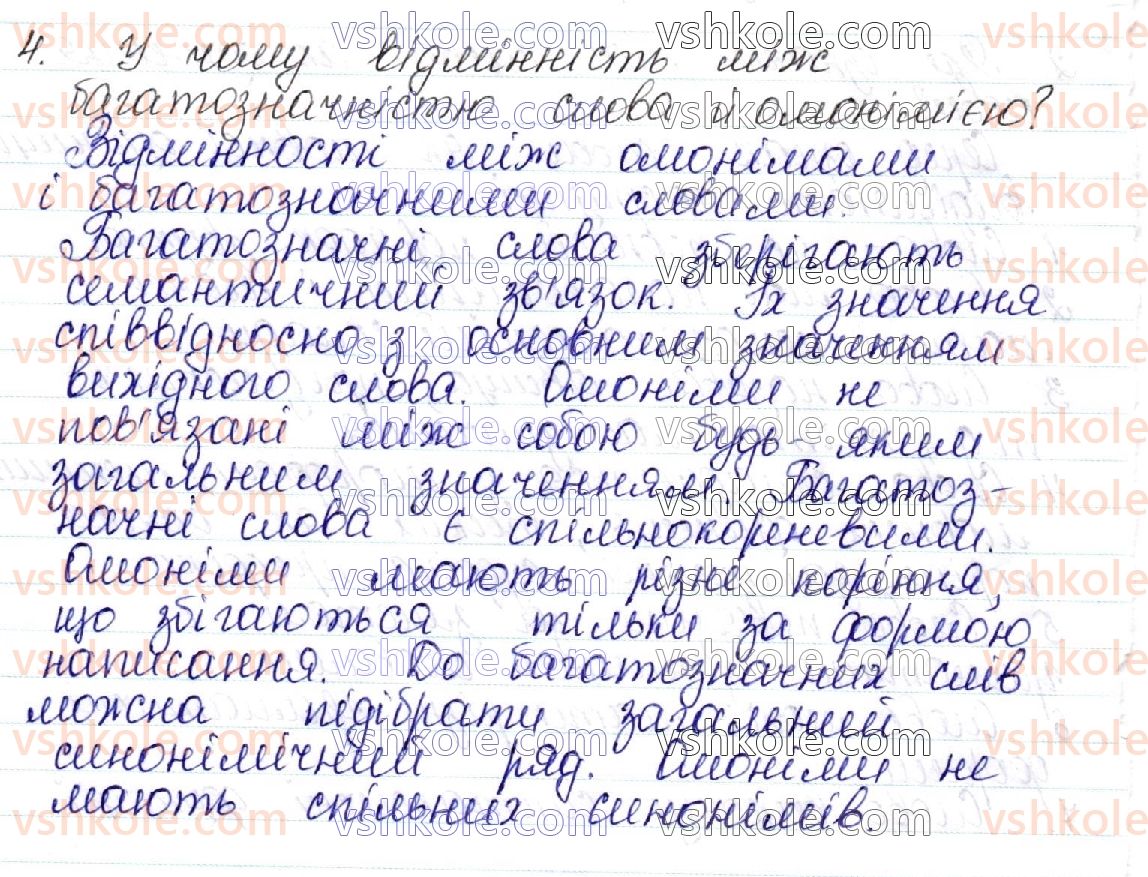 4. У чому відмінність між
багатозначністю слова й омонімією?
Відмінності між омонімами
і багатозначними словами.
Багатозначні слова зберігають
семантичний зв'язок. Їх значення
співвідносно з основним значенням
вихідного слова. Омоніми не
пов'язані між собою будь-яким
загальним значенням. Багатоз-
начні слова є спільнокореневими.
Омоніми мають різні коріння,
що збігаються тільки за формою
написання. До багатозначних слів
можна підібрати загальний
синонімічний ряд. Омоніми не
мають спільних синонімів.